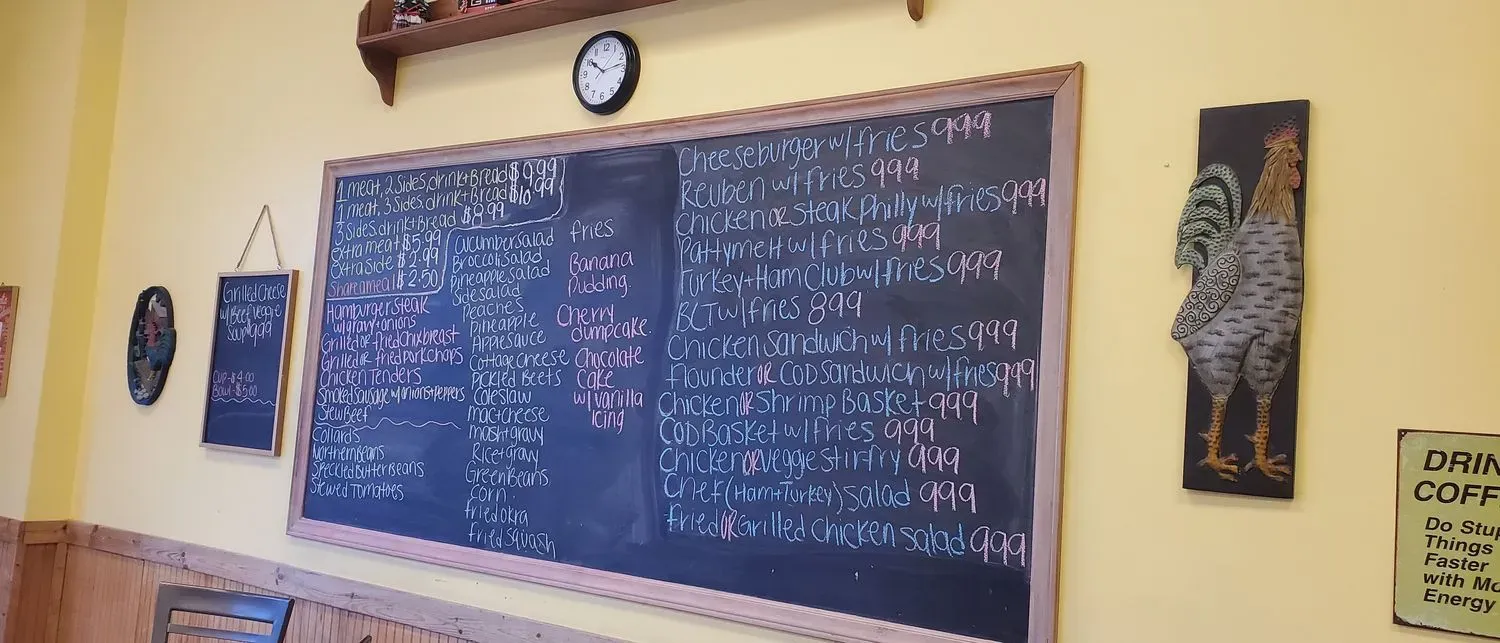 Grilled Cheese
w/Beef Veggie
Soup
Cup-$4.00
Bowl-$5.00
1 meat, 2 Sides, drink+Bread $9.99
1 meat, 3 Sides, drink+Bread $10.99
3 Sides, drink+Bread $8.99
extra meat $5.99
extra Side $2.99
Share a meal $2.50
Hamburger Steak
w/gravy+onions
Grilled or fried chix breast
Grilled or fried pork chops
Chicken Tenders
Smoked Sausage w/onions+peppers
Stew Beef
Collards
Northern Beans
Speckled Butter Beans
Stewed Tomatoes
Cucumber Salad
Broccoli Salad
Pineapple Salad
Side Salad
Peaches
Pineapple
Applesauce
Cottage cheese
Pickled Beets
Coleslaw
mac+cheese
mash+gravy
Rice+gravy
Green Beans
Corn
fried okra
fried squash
fries
Banana
Pudding.
Cherry
dumpcake.
Chocolate
Cake
w/vanilla
Icing
Cheeseburger w/fries 999
Reuben w/fries 999
Chicken OR Steak Philly w/fries 999
Pattymelt w/fries 999
Turkey+Ham Club w/fries 999
BCT w/fries 899
Chicken Sandwich w/fries 999
Flounder OR COD Sandwich w/fries 999
Chicken OR Shrimp Basket 999
COD Basket w/fries 999
Chicken OR Veggie Stirfry 999
Chef (Ham+Turkey) Salad 999
Fried OR Grilled Chicken Salad 999
12
11
2
3
4
5
6
7
8
9
Do
Things
Faster
with
Energy